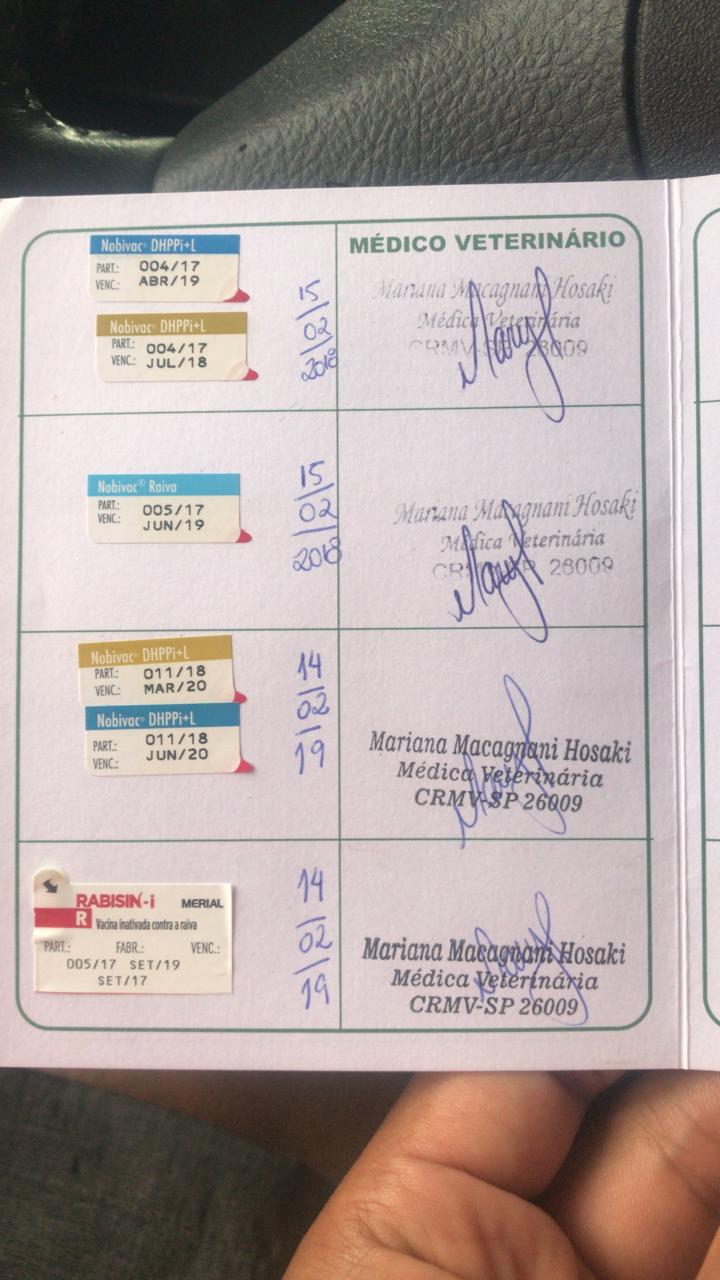 MÉDICO VETERINÁRIO
Nobivac® DHPPi+L
PART.: 004/17
VENC.: ABR/19
Nobivac® DHPPi+L
PART.: 004/17
VENC.: JUL/18
15/02/2018
Mariana Macagnani Hosaki
Médica Veterinária
CRMV-SP 26009
Nobivac® Raiva
PART.: 005/17
VENC.: JUN/19
15/02/2018
Mariana Macagnani Hosaki
Médica Veterinária
CRMV-SP 26009
Nobivac® DHPPi+L
PART.: 011/18
VENC.: MAR/20
Nobivac® DHPPi+L
PART.: 011/18
VENC.: JUN/20
14/02/19
Mariana Macagnani Hosaki
Médica Veterinária
CRMV-SP 26009
RABISIN-i MERIAL
R Vacina inativada contra a raiva
PART.: FABR.: VENC.:
005/17 SET/19
SET/17
14/02/19
Mariana Macagnani Hosaki
Médica Veterinária
CRMV-SP 26009